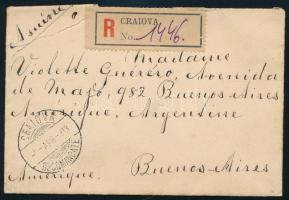 R CRAIOVA
No. 1446.
Madame
Violette Guérero, Avenida
de Mayo, 982 Buenos-Aires
Amérique, Argentine
CRAIOVA
RECOMANDATE
Buenos-Aires
Amérique.